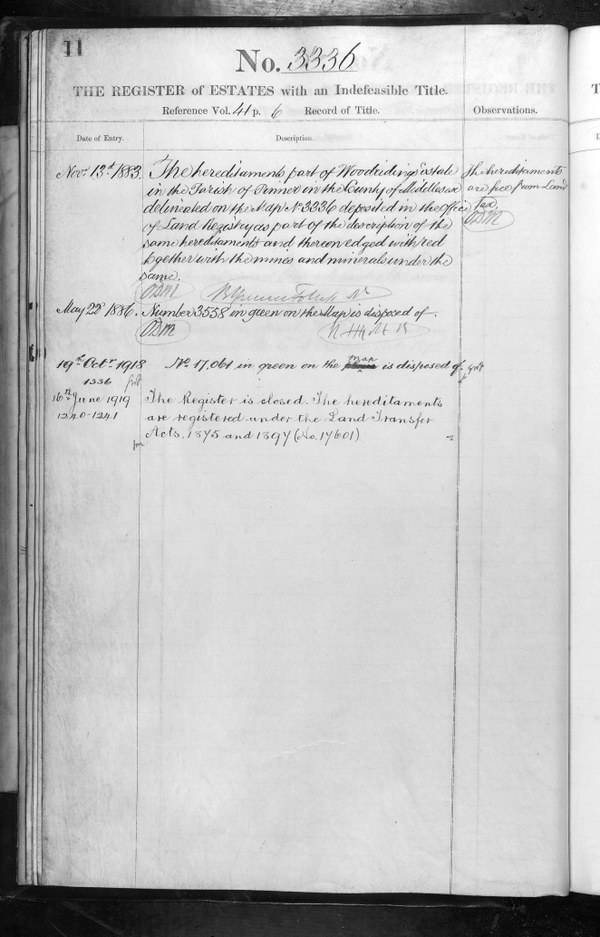 11
No. 3336
THE REGISTER of ESTATES with an Indefeasible Title.
Reference Vol. 41 p. 6 Record of Title. Observations.
Date of Entry. Description.
Novr 13th 1883. The hereditaments part of Woodridings Estate
in the Parish of Pinner in the County of Middlesex
delineated on the Map No 3336 deposited in the Office
of Land Registry as part of the description of the
same hereditaments and thereon edged with red
together with the mines and minerals under the
same.
The hereditaments
are free from Land
Tax.
May 22d 1886. Number 3558 in green on the Map is disposed of.
19th Octr 1918 No 17,061 in green on the map is disposed of
1336
16th June 1919 The Register is closed. The hereditaments
1240-1241 are registered under the Land Transfer
Acts, 1875 and 1897 (No. 17601)